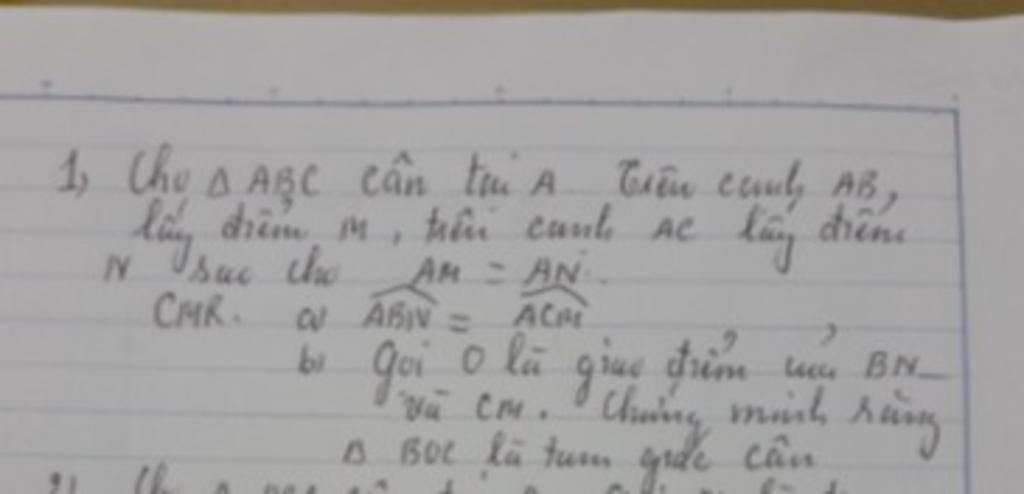 1, Cho Δ ABC cân tại A. Trên cạnh AB,
lấy điểm M, trên cạnh AC lấy điểm
N sao cho AM = AN.
CMR. a) ABN = ACM
b) Gọi O là giao điểm của BN
và CM. Chứng minh rằng
Δ BOC là tam giác cân